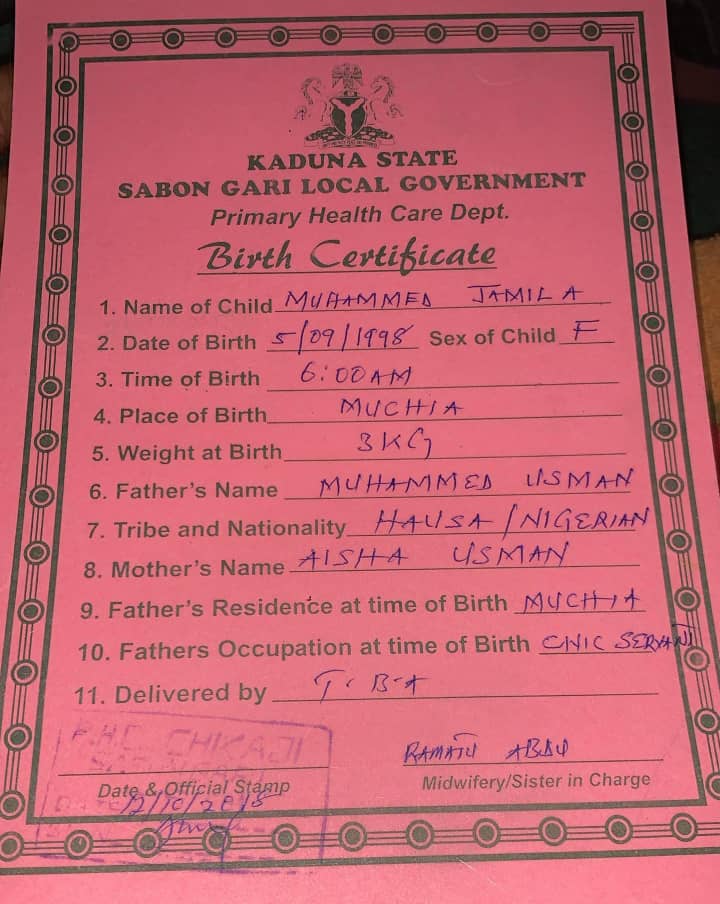 KADUNA STATE
SABON GARI LOCAL GOVERNMENT
Primary Health Care Dept.
Birth Certificate
1. Name of Child MUHAMMED JAMILA
2. Date of Birth 5/09/1998 Sex of Child F
3. Time of Birth 6:00AM
4. Place of Birth MUCHIA
5. Weight at Birth 3KG
6. Father's Name MUHAMMED USMAN
7. Tribe and Nationality HAUSA/NIGERIAN
8. Mother's Name AISHA USMAN
9. Father's Residence at time of Birth MUCHIA
10. Fathers Occupation at time of Birth CIVIC SERVANT
11. Delivered by T.B.A
P.H.C CHIKAJI
RAMATU ABDU
Date & Official Stamp
Midwifery/Sister in Charge